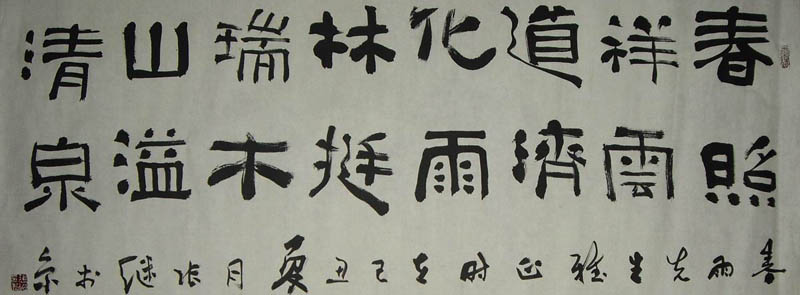 春照
祥雲
道濟
化雨
林挺
瑞木
山溢
清泉
春雨先生雅正时在己丑夏月张继於京